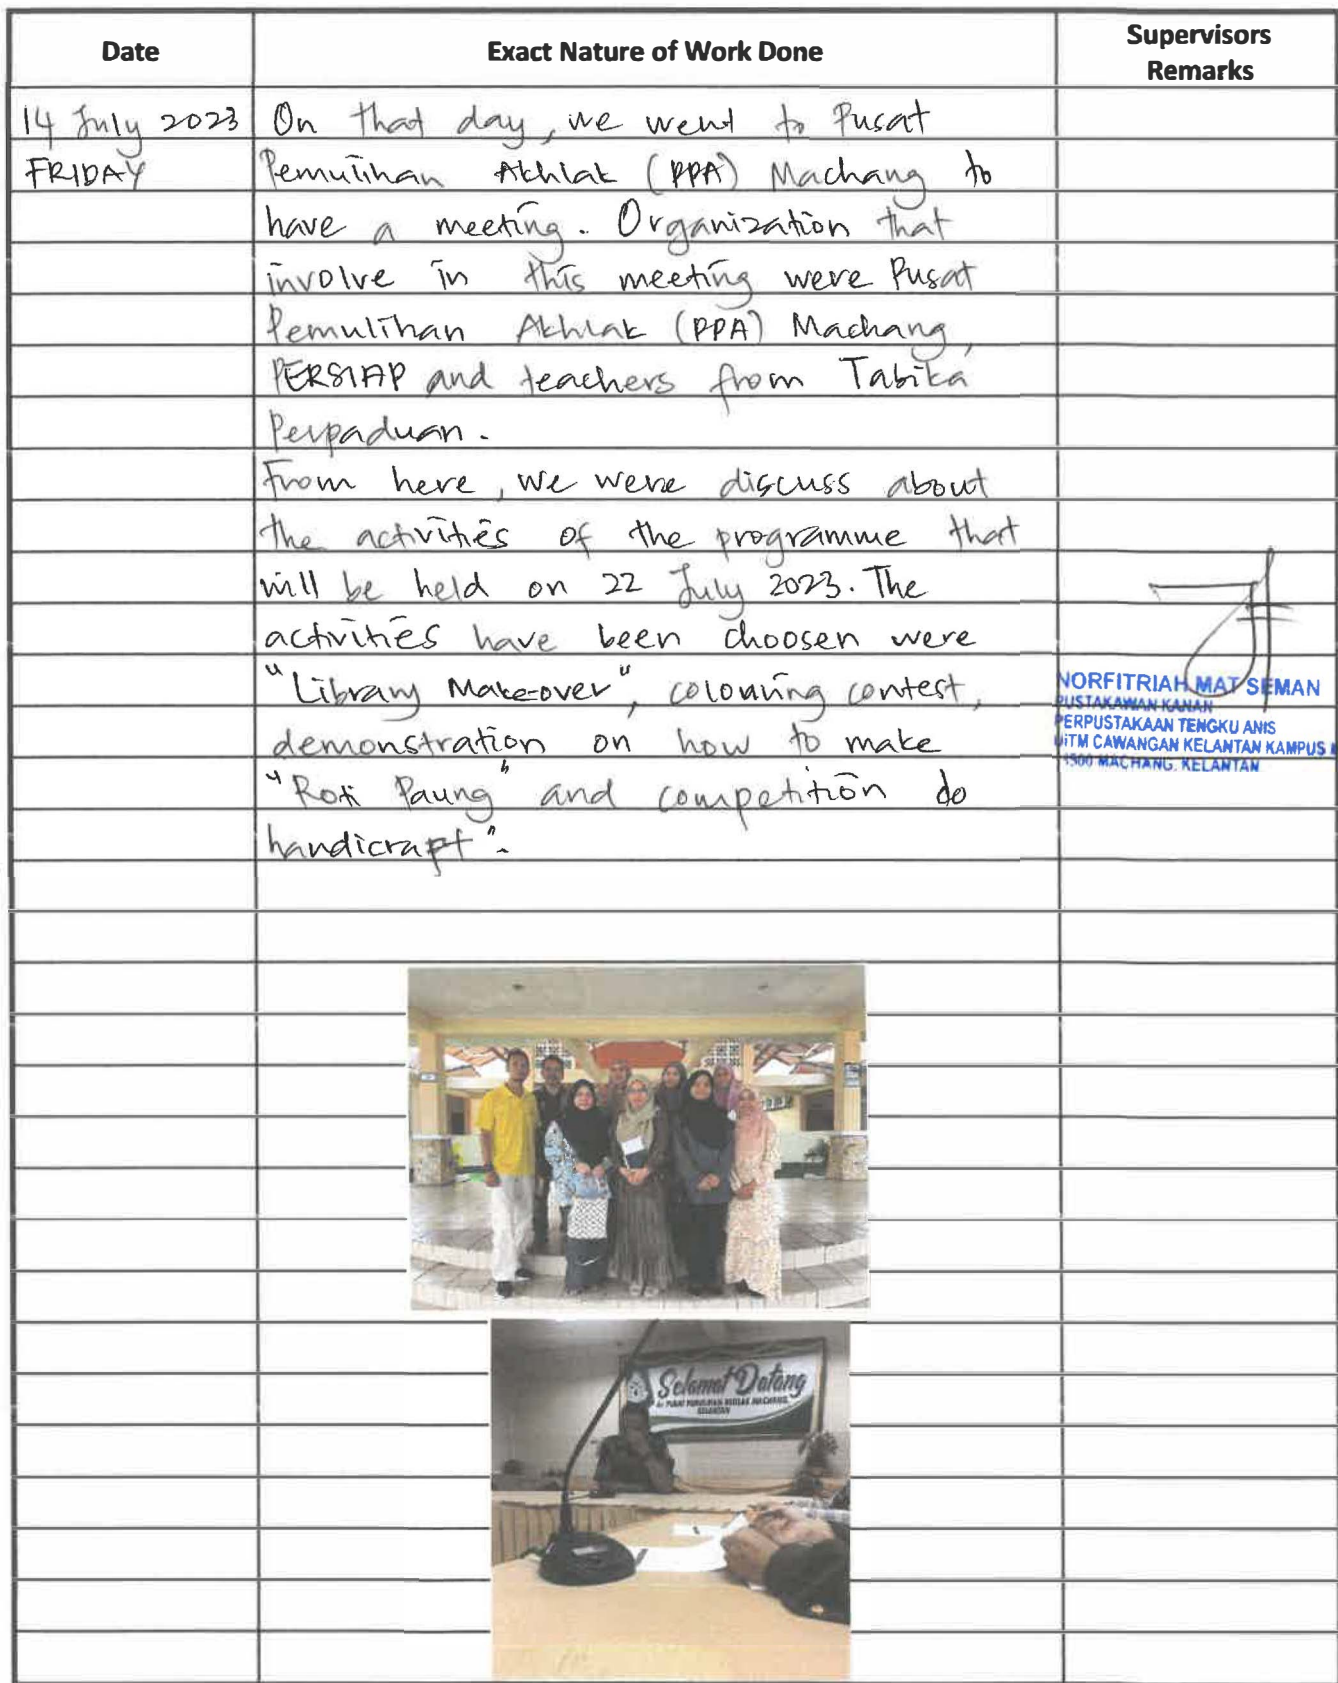 Date
Exact Nature of Work Done
Supervisors
Remarks
14 July 2023
FRIDAY
On that day, we went to Pusat
Pemulihan Akhlak (PPA) Machang to
have a meeting. Organization that
involve in this meeting were Pusat
Pemulihan Akhlak (PPA) Machang,
PERSIAP and teachers from Tabika
Perpaduan.
From here, we were discuss about
the activities of the programme that
will be held on 22 July 2023. The
activities have been choosen were
"Library Make-over", colouring contest,
demonstration on how to make
"Roti Paung" and competition do
handicrapt".
NORFITRIAH MAT SEMAN
PUSTAKAWAN KANAN
PERPUSTAKAAN TENGKU ANIS
UiTM CAWANGAN KELANTAN KAMPUS
MACHANG. KELANTAN
Selamat Datang
KELANTAN